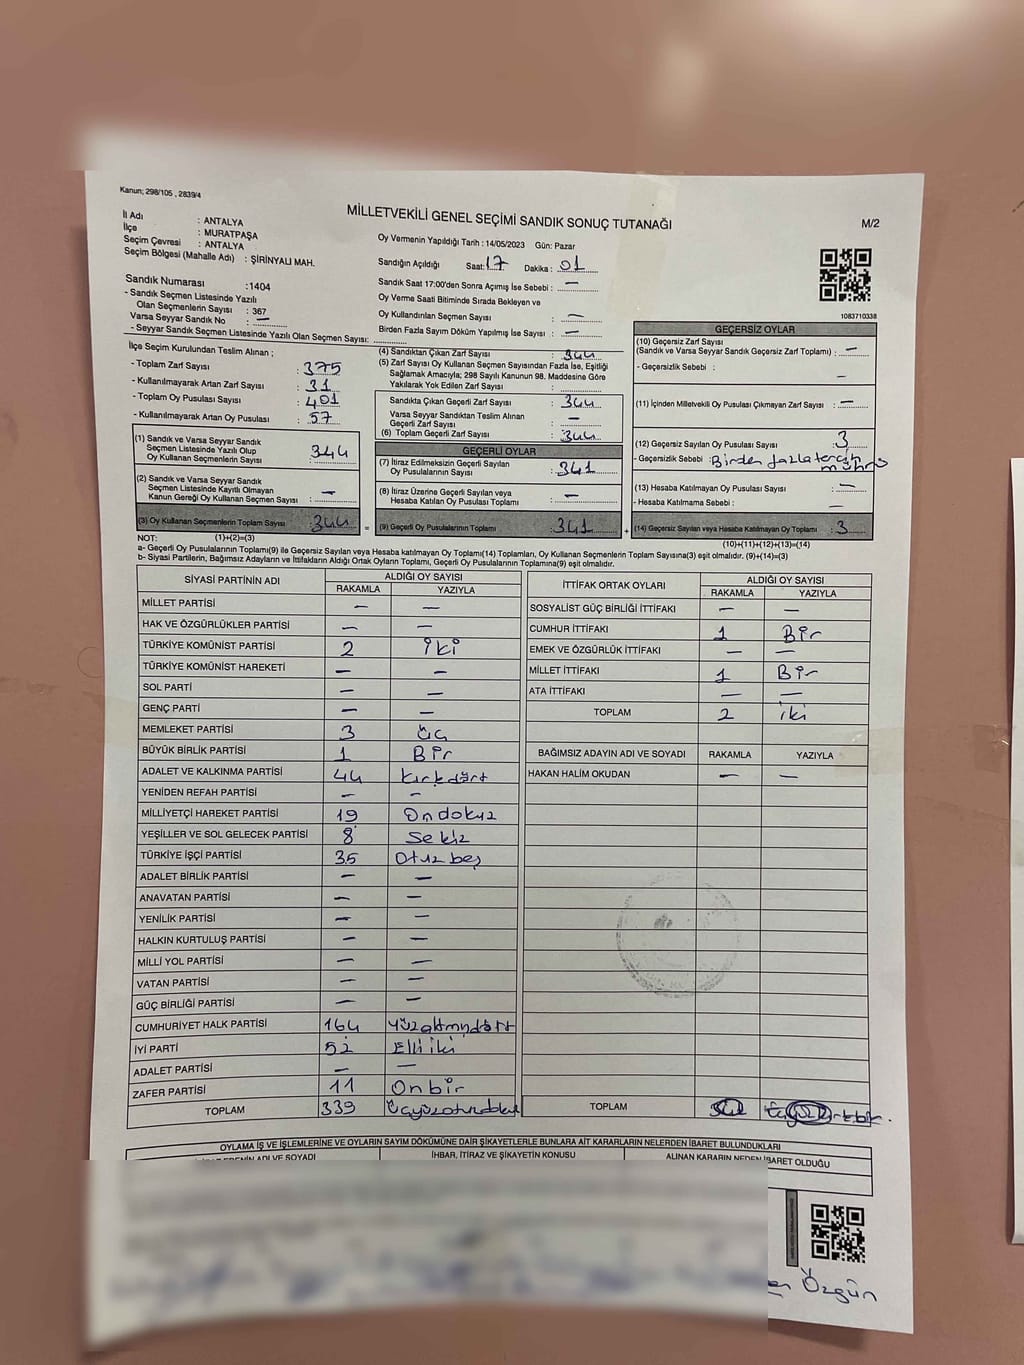 Kanun; 298/105 , 2839/4
MİLLETVEKİLİ GENEL SEÇİMİ SANDIK SONUÇ TUTANAĞI
M/2
İl Adı : ANTALYA
İlçe : MURATPAŞA
Seçim Çevresi : ANTALYA
Seçim Bölgesi (Mahalle Adı) : ŞİRİNYALI MAH.
Sandık Numarası :1404
- Sandık Seçmen Listesinde Yazılı
Olan Seçmenlerin Sayısı : 367
Varsa Seyyar Sandık No : —
- Seyyar Sandık Seçmen Listesinde Yazılı Olan Seçmen Sayısı:
Oy Vermenin Yapıldığı Tarih : 14/05/2023 Gün: Pazar
Sandığın Açıldığı Saat: 17 Dakika : 01
Sandık Saat 17:00'den Sonra Açımış İse Sebebi : —
Oy Verme Saati Bitiminde Sırada Bekleyen ve
Oy Kullandırılan Seçmen Sayısı : —
Birden Fazla Sayım Döküm Yapılmış İse Sayısı : —
1083710338
İlçe Seçim Kurulundan Teslim Alınan ;
- Toplam Zarf Sayısı : 375
- Kullanılmayarak Artan Zarf Sayısı : 31
- Toplam Oy Pusulası Sayısı : 401
- Kullanılmayarak Artan Oy Pusulası : 57
(1) Sandık ve Varsa Seyyar Sandık
Seçmen Listesinde Yazılı Olup
Oy Kullanan Seçmenlerin Sayısı : 344
(2) Sandık ve Varsa Seyyar Sandık
Seçmen Listesinde Kayıtlı Olmayan
Kanun Gereği Oy Kullanan Seçmen Sayısı : —
(3) Oy Kullanan Seçmenlerin Toplam Sayısı : 344
(4) Sandıktan Çıkan Zarf Sayısı : 344
(5) Zarf Sayısı Oy Kullanan Seçmen Sayısından Fazla İse, Eşitliği
Sağlamak Amacıyla; 298 Sayılı Kanunun 98. Maddesine Göre
Yakılarak Yok Edilen Zarf Sayısı :
Sandıkta Çıkan Geçerli Zarf Sayısı : 344
Varsa Seyyar Sandıktan Teslim Alınan
Geçerli Zarf Sayısı : —
(6) Toplam Geçerli Zarf Sayısı : 344
GEÇERLİ OYLAR
(7) İtiraz Edilmeksizin Geçerli Sayılan
Oy Pusulalarının Sayısı : 341
(8) İtiraz Üzerine Geçerli Sayılan veya
Hesaba Katılan Oy Pusulası Toplamı : —
= (9) Geçerli Oy Pusulalarının Toplamı : 341
GEÇERSİZ OYLAR
(10) Geçersiz Zarf Sayısı
(Sandık ve Varsa Seyyar Sandık Geçersiz Zarf Toplamı) : —
- Geçersizlik Sebebi : —
(11) İçinden Milletvekili Oy Pusulası Çıkmayan Zarf Sayısı : —
(12) Geçersiz Sayılan Oy Pusulası Sayısı : 3
- Geçersizlik Sebebi : Birden fazla tercih
mührü
(13) Hesaba Katılmayan Oy Pusulası Sayısı : —
- Hesaba Katılmama Sebebi : —
+ (14) Geçersiz Sayılan veya Hesaba Katılmayan Oy Toplamı : 3
NOT: (1)+(2)=(3) (10)+(11)+(12)+(13)=(14)
a- Geçerli Oy Pusulalarının Toplamı(9) ile Geçersiz Sayılan veya Hesaba katılmayan Oy Toplamı(14) Toplamları, Oy Kullanan Seçmenlerin Toplam Sayısına(3) eşit olmalıdır. (9)+(14)=(3)
b- Siyasi Partilerin, Bağımsız Adayların ve İttifakların Aldığı Ortak Oyların Toplamı, Geçerli Oy Pusulalarının Toplamına(9) eşit olmalıdır.
SİYASİ PARTİNİN ADI ALDIĞI OY SAYISI
RAKAMLA YAZIYLA
MİLLET PARTİSİ — —
HAK VE ÖZGÜRLÜKLER PARTİSİ — —
TÜRKİYE KOMÜNİST PARTİSİ 2 iki
TÜRKİYE KOMÜNİST HAREKETİ — —
SOL PARTİ — —
GENÇ PARTİ — —
MEMLEKET PARTİSİ 3 Üç
BÜYÜK BİRLİK PARTİSİ 1 Bir
ADALET VE KALKINMA PARTİSİ 44 kırkdört
YENİDEN REFAH PARTİSİ — —
MİLLİYETÇİ HAREKET PARTİSİ 19 Ondokuz
YEŞİLLER VE SOL GELECEK PARTİSİ 8 Sekiz
TÜRKİYE İŞÇİ PARTİSİ 35 Otuzbeş
ADALET BİRLİK PARTİSİ — —
ANAVATAN PARTİSİ — —
YENİLİK PARTİSİ — —
HALKIN KURTULUŞ PARTİSİ — —
MİLLİ YOL PARTİSİ — —
VATAN PARTİSİ — —
GÜÇ BİRLİĞİ PARTİSİ — —
CUMHURİYET HALK PARTİSİ 164 Yüzaltmışdört
İYİ PARTİ 52 Elli iki
ADALET PARTİSİ — —
ZAFER PARTİSİ 11 Onbir
TOPLAM 339 Üçyüzotuzdokuz
İTTİFAK ORTAK OYLARI ALDIĞI OY SAYISI
RAKAMLA YAZIYLA
SOSYALİST GÜÇ BİRLİĞİ İTTİFAKI — —
CUMHUR İTTİFAKI 1 Bir
EMEK VE ÖZGÜRLÜK İTTİFAKI — —
MİLLET İTTİFAKI 1 Bir
ATA İTTİFAKI — —
TOPLAM 2 iki
BAĞIMSIZ ADAYIN ADI VE SOYADI RAKAMLA YAZIYLA
HAKAN HALİM OKUDAN — —
TOPLAM
OYLAMA İŞ VE İŞLEMLERİNE VE OYLARIN SAYIM DÖKÜMÜNE DAİR ŞİKAYETLERLE BUNLARA AİT KARARLARIN NELERDEN İBARET BULUNDUKLARI
ADI VE SOYADI İHBAR, İTİRAZ VE ŞİKAYETİN KONUSU ALINAN KARARIN NEDEN İBARET OLDUĞU
Özgün